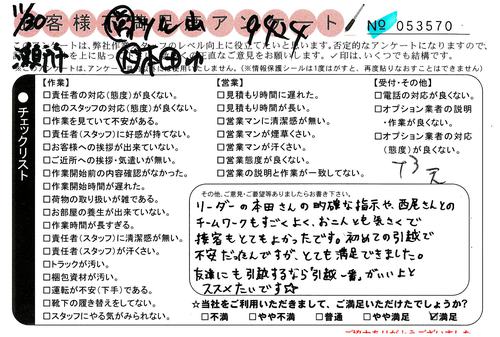 お客様満足度アンケート
№ 053570
11/30
9424
このアンケートは、弊社作業スタッフのレベル向上に役立てたいと思います。否定的なアンケートになりますので、
✓印は、いくつでも結構です。
(※情報保護シールは1度はがすと、再度貼りなおすことはできません)
●チェックリスト
【作業】
□責任者の対応(態度)が良くない。
□他のスタッフの対応(態度)が良くない。
□作業を見ていて不安がある。
□責任者(スタッフ)に好感が持てない。
□お客様への挨拶が出来ていない。
□ご近所への挨拶・気遣いが無い。
□作業開始前の内容確認がなかった。
□作業開始時間が遅れた。
□荷物の取り扱いが雑である。
□お部屋の養生が出来ていない。
□作業時間が長すぎる。
□責任者(スタッフ)に清潔感が無い。
□責任者(スタッフ)が汗くさい。
□トラックが汚い。
□梱包資材が汚い。
□運転が不安(下手)である。
□靴下の履き替えをしてない。
□スタッフにやる気がみられない。
【営業】
□見積もり時間に遅れた。
□見積もり時間が長い。
□営業マンに清潔感が無い。
□営業マンが煙草くさい。
□営業マンが汗くさい。
□営業態度が良くない。
□営業の説明と作業が一致してない。
【受付・その他】
□電話の対応が良くない。
□オプション業者の説明
・作業が良くない。
□オプション業者の対応
(態度)が良くない。
その他、ご意見・ご要望等ありましたらお書き下さい。
リーダーの本田さんの的確な指示や西尾さんとの
チームワークもすごくよく、お二人とも気さくで
接客もとてもよかったです。初めての引越で
不安だったんですが、とても満足できました。
友達にも引越するなら引越一番がいいよと
ススメたいです☆
☆当社をご利用いただきまして、ご満足いただけたでしょうか?
□不満 □やや不満 □普通 □やや満足 ☑満足
ご協力ありがとうございました